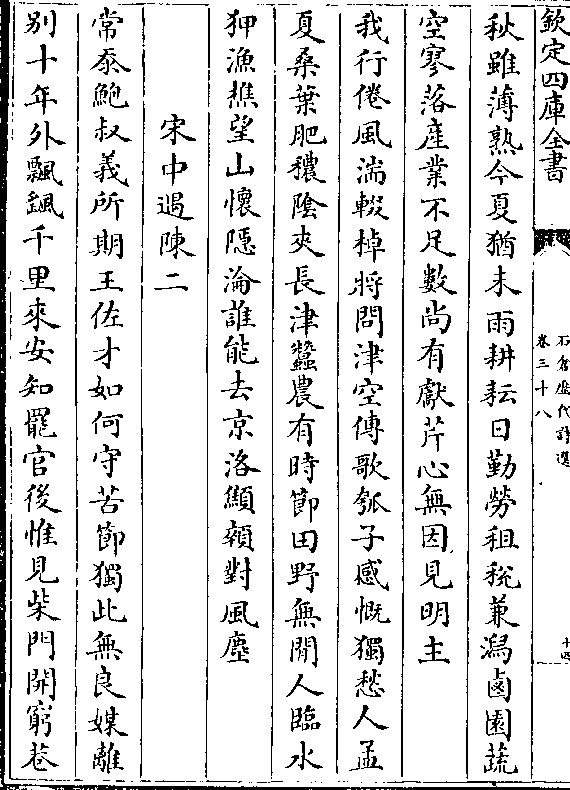 欽定四庫全書
石倉歴代詩選
卷三十八
十四
秋雖薄熟今夏猶未雨耕耘日勤勞租税兼潟鹵園蔬
空寥落産業不足數尚有獻芹心無因見明主
我行倦風湍輟棹將問津空傳歌瓠子感慨獨愁人孟
夏桑葉肥穠陰夾長津蠶農有時節田野無閒人臨水
狎漁樵望山懷隱淪誰能去京洛顦顇對風塵
宋中遇陳二
常忝鮑叔義所期王佐才如何守苦節獨此無良媒離
别十年外飄颻千里來安知罷官後惟見柴門開窮巷